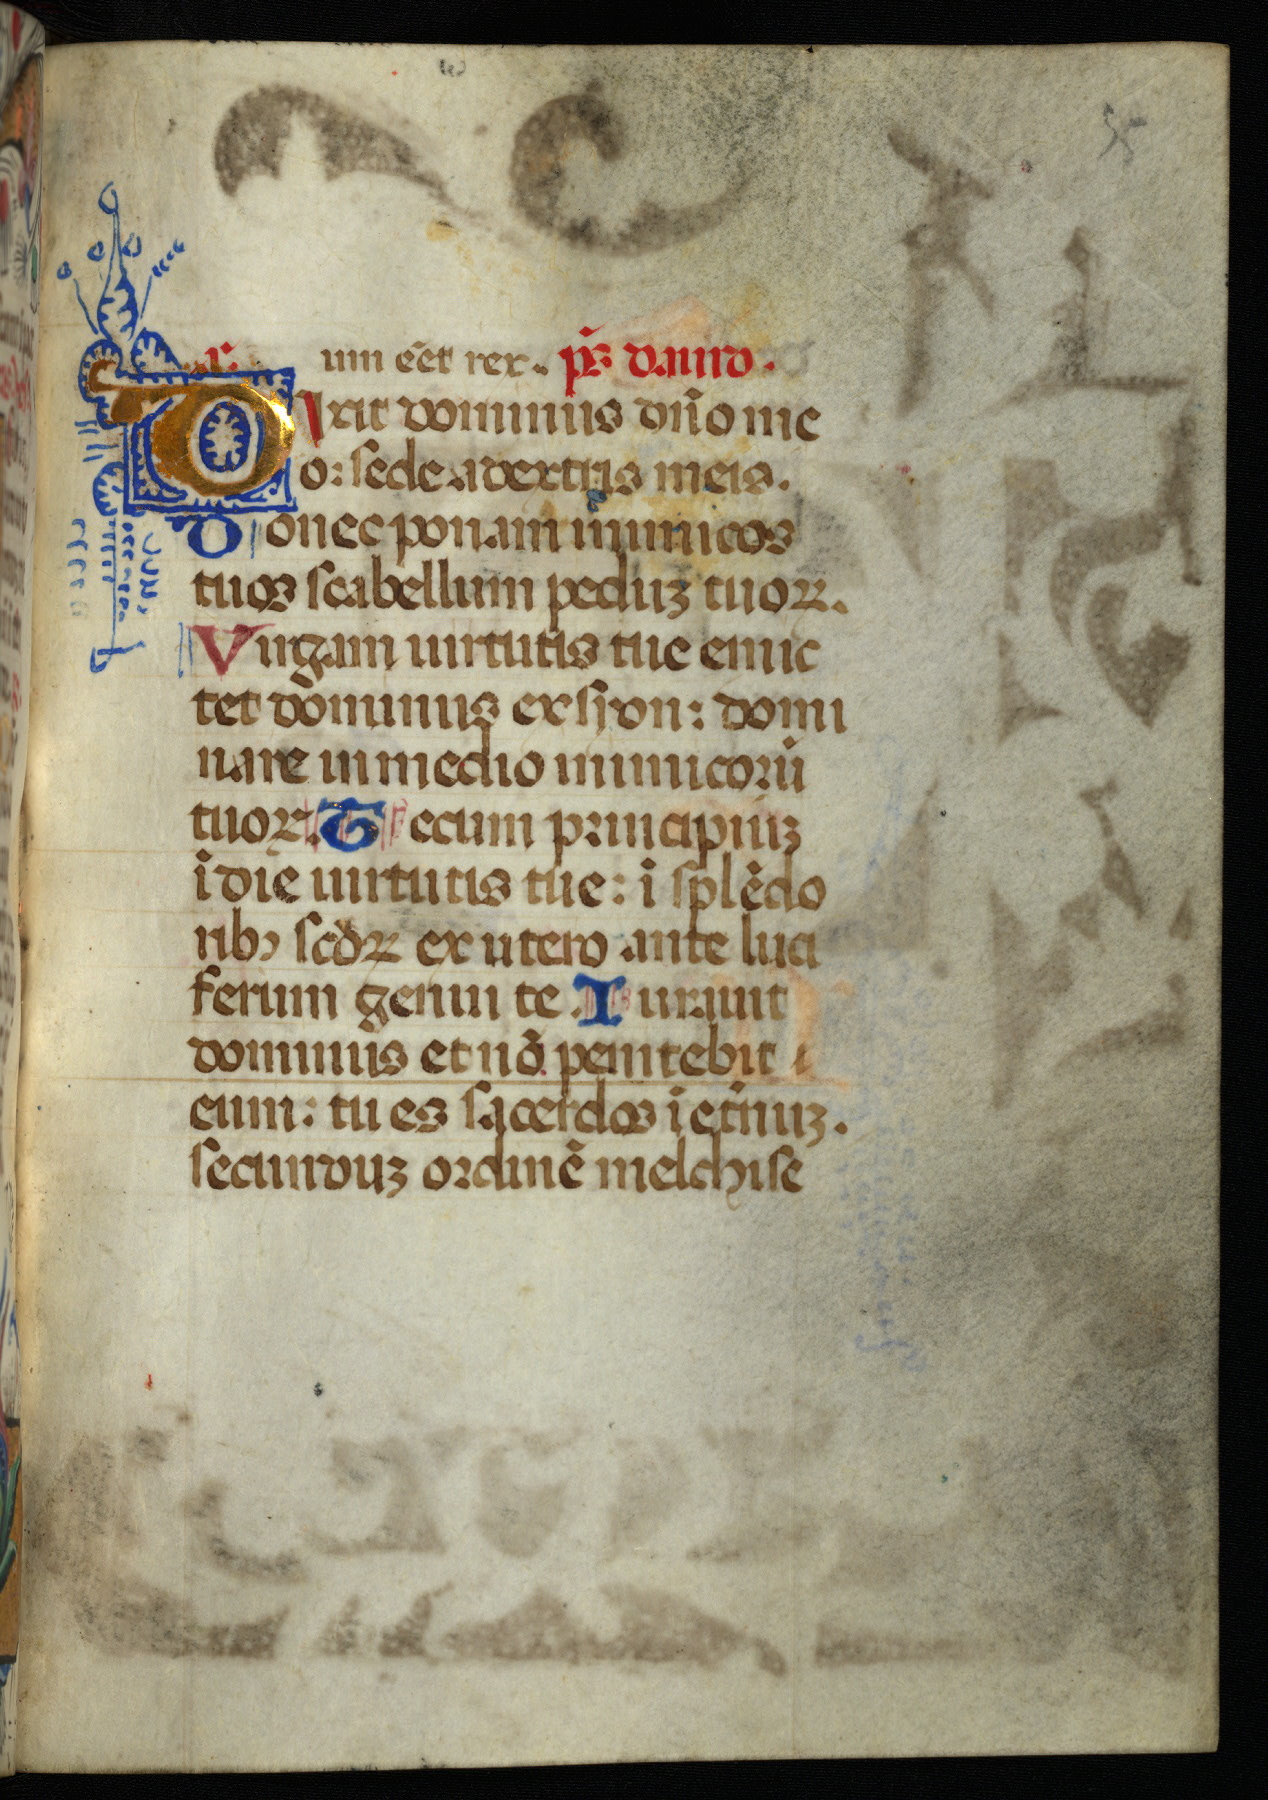 um e͂et rex. p̃s dauid.
Dixit dominus dño me
o: sede a dextris meis.
Donec ponam inimicos
tuos scabellum peduꝫ tuoꝝ.
Virgam uirtutis tue emic
tet dominus ex syon: domi
nare in medio inimicorū
tuoꝝ. Tecum principiuꝫ
ī die uirtutis tue: ī splēdo
ribꝰ scōꝝ ex utero ante luci
ferum genui te. Iurauit
dominus et nō penitebit
eum: tu es sacerdos ī et̃nuꝫ.
secunduꝫ ordinē melchise